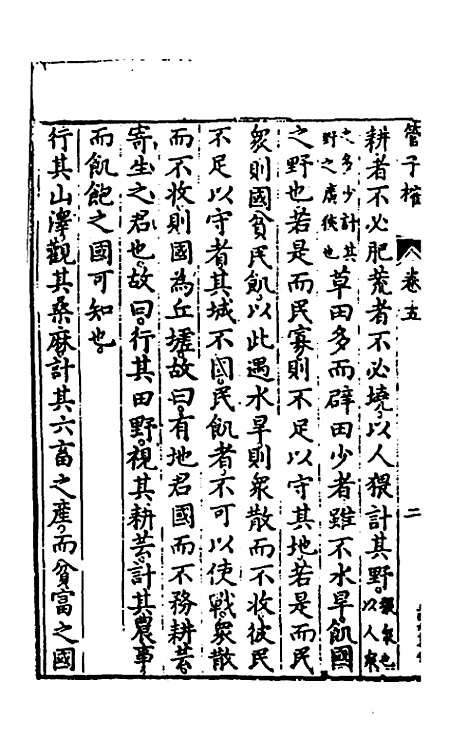 管子榷 卷五 二
耕者不必肥荒者不必墝以人猥計其野猥衆也以人衆
之多少計其野之廣狹也草田多而辟田少者雖不水旱飢國
之野也若是而民寡則不足以守其地若是而民
衆則國貧民飢以此遇水旱則衆散而不收彼民
不足以守者其城不固民飢者不可以使戰衆散
而不收則國為丘墟故曰有地君國而不務耕芸
寄生之君也故曰行其田野視其耕芸計其農事
而飢飽之國可知也
行其山澤觀其桑麻計其六畜之產而貧富之國